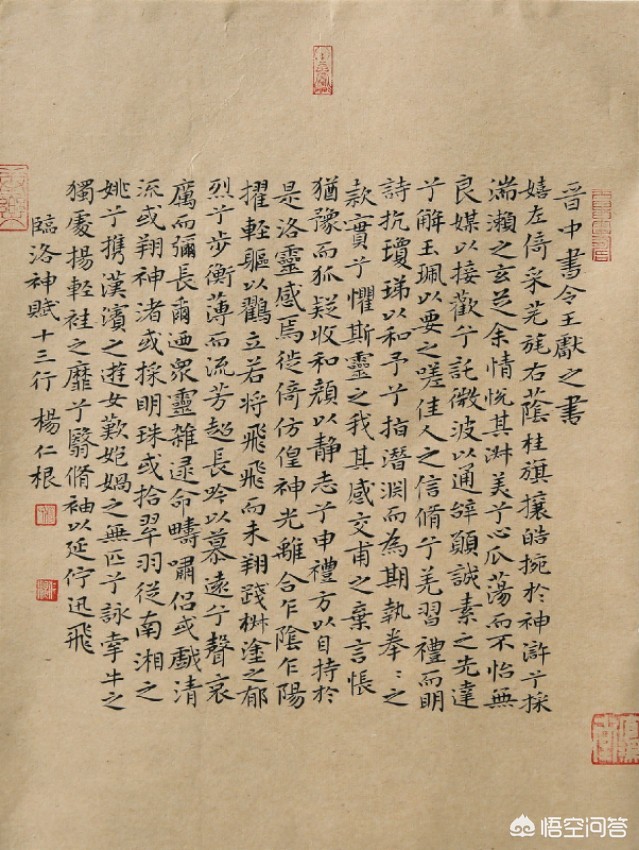 晉中書令王獻之書
嬉左倚采旄右蔭桂旗攘皓捥於神滸兮採
湍瀨之玄芝余情悅其淑美兮心蕩而不怡無
良媒以接歡兮託微波以通辭願誠素之先達
兮解玉珮以要之嗟佳人之信脩兮羌習禮而明
詩抗瓊珶以和予兮指潛淵而為期執拳〻之
款實兮懼斯靈之我其感交甫之棄言悵
猶豫而狐疑收和顏以靜志兮申禮方以自持於
是洛靈感焉徙倚仿偟神光離合乍陰乍陽
擢輕軀以鶴立若將飛飛而未翔踐椒塗之郁
烈兮步衡薄而流芳超長吟以慕遠兮聲哀
厲而彌長爾迺眾靈雜遝命疇嘯侶或戲清
流或翔神渚或採明珠或拾翠羽從南湘之
姚兮攜漢濱之遊女歎媧之無匹兮詠牽牛之
獨處揚輕袿之靡兮翳脩袖以延佇迅飛
臨洛神賦十三行 楊仁根
悟空问答